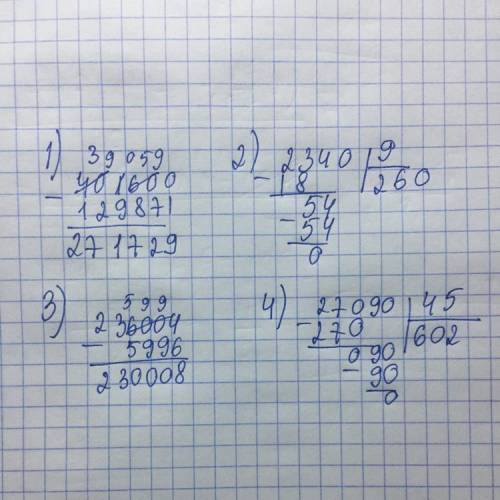 1) 39059
- 401600
129871
271729
2) - 2340 | 9
18 | 260
- 54
54
0
3) 599
- 236004
5996
230008
4) - 27090 | 45
270 | 602
090
- 90
0